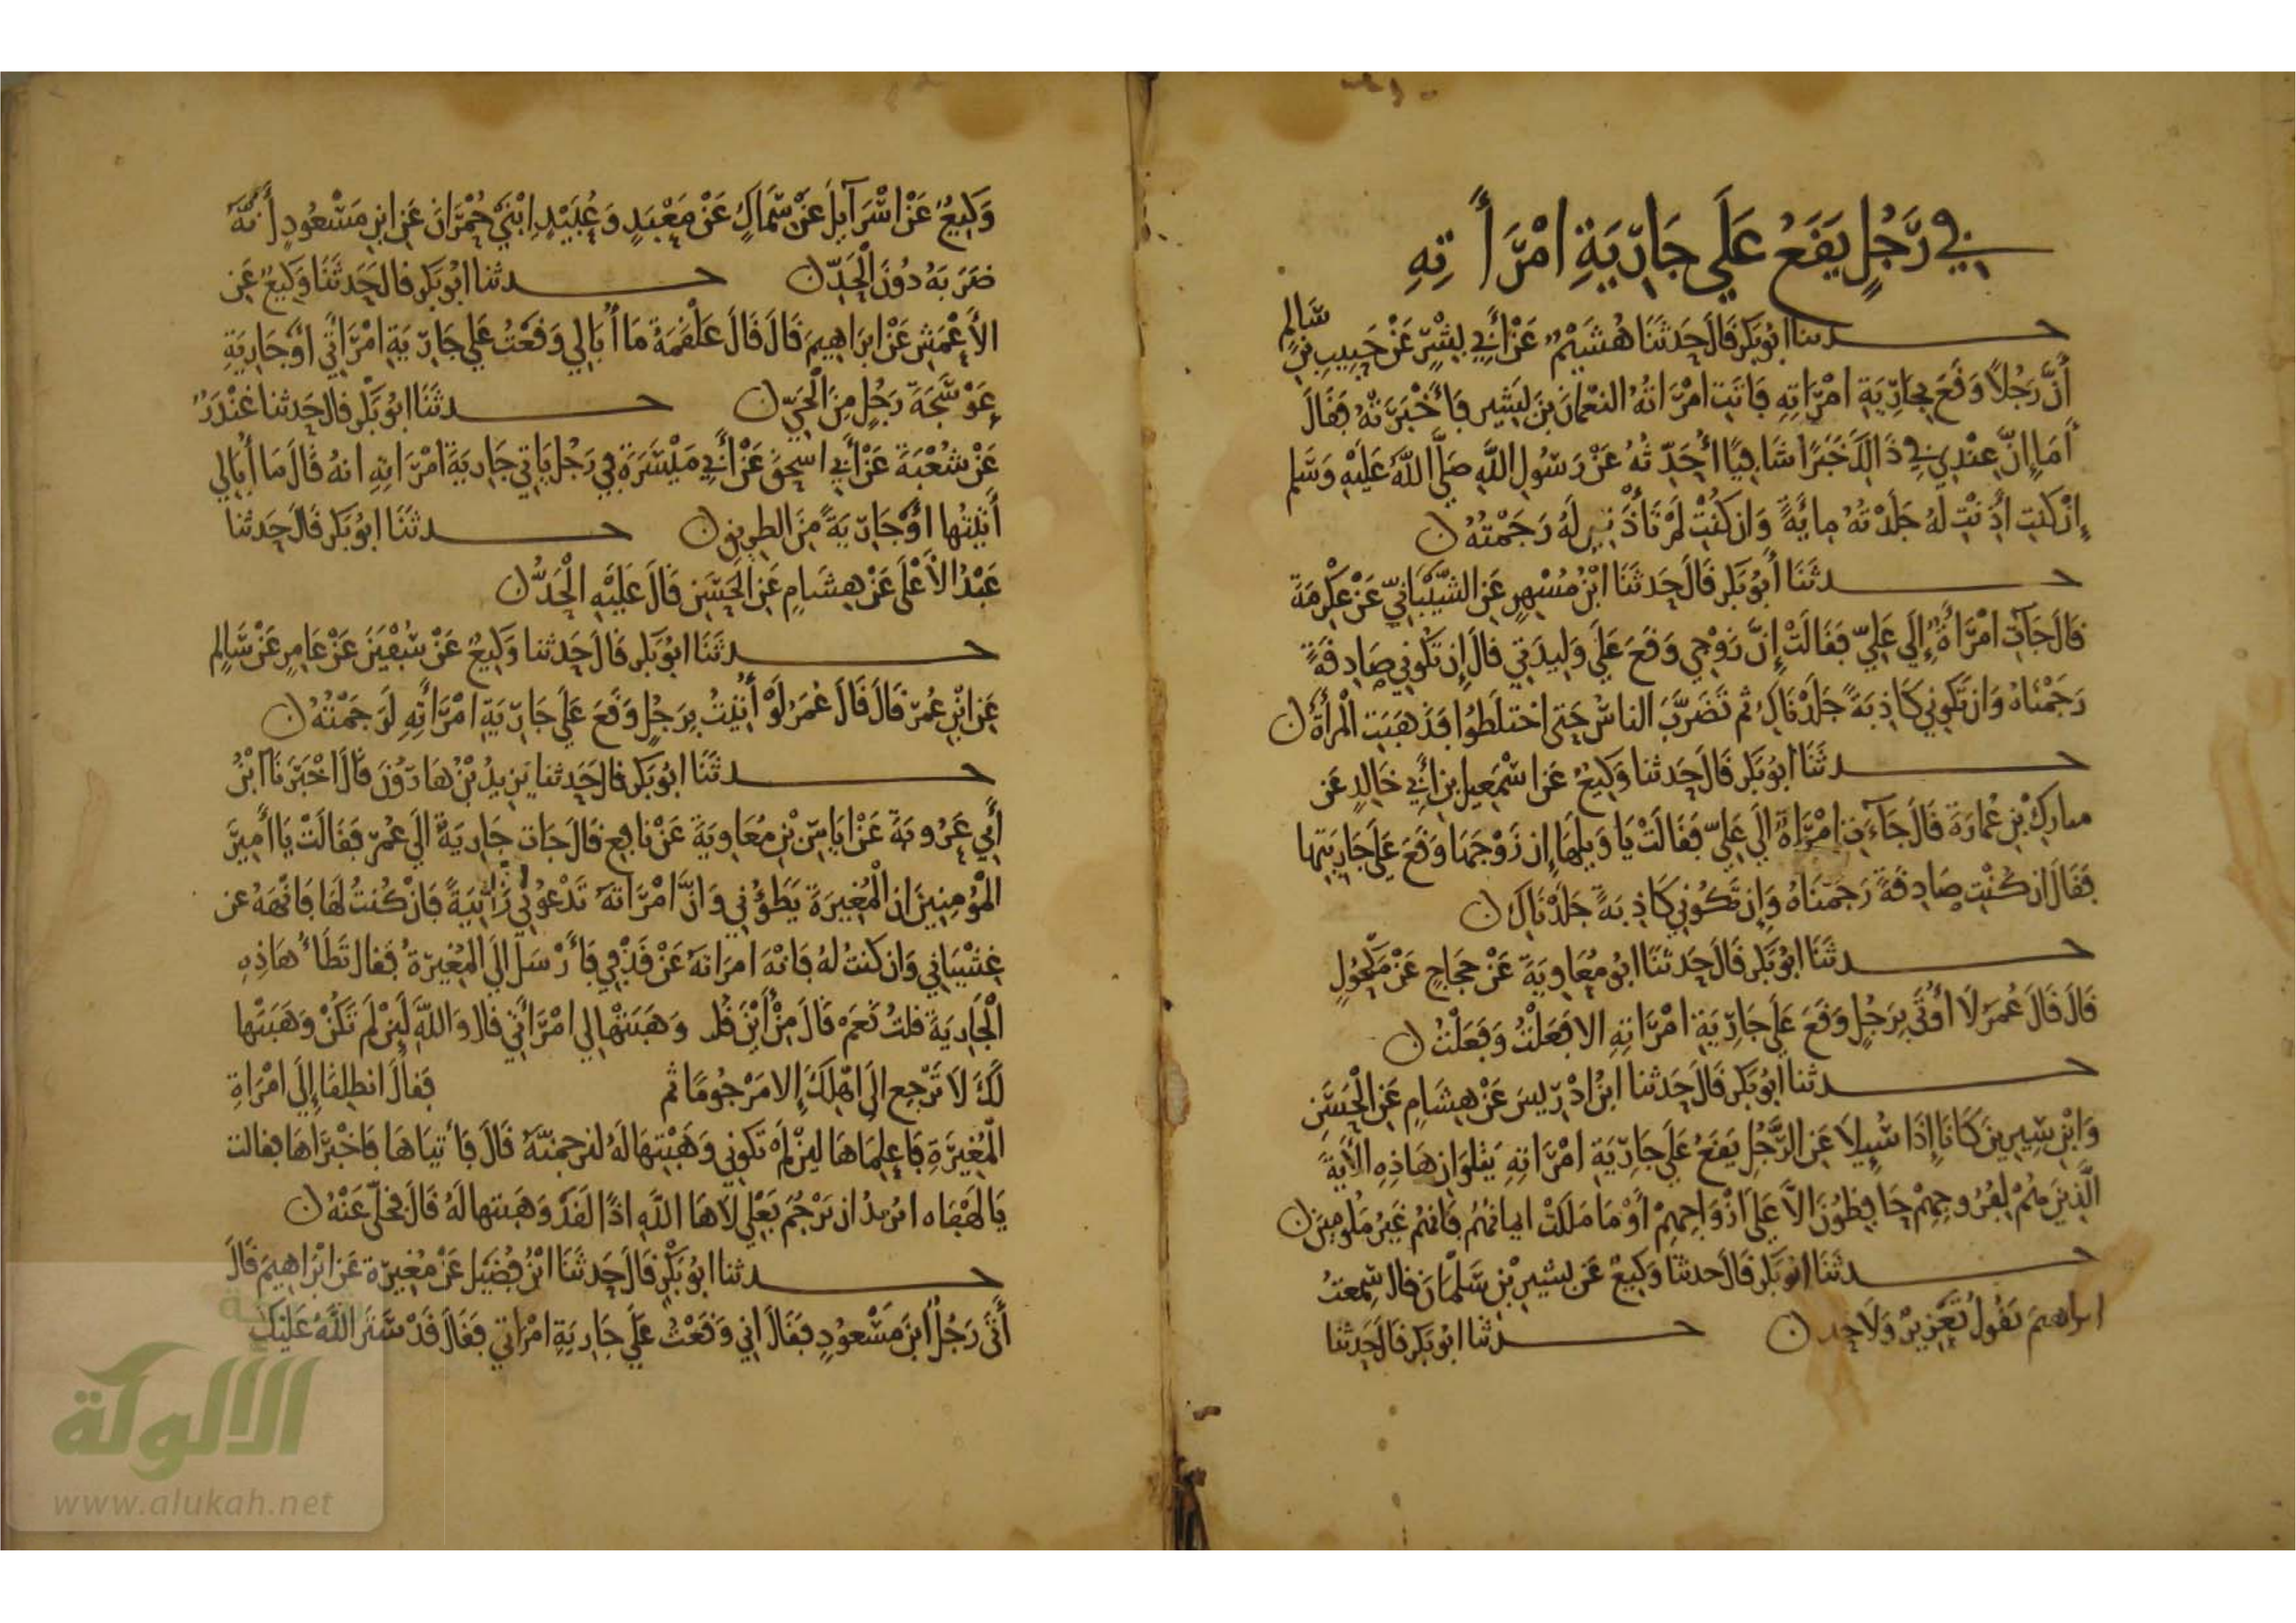 في رَجُلٍ يَقَعُ عَلَى جَارِيَةِ امْرَأَتِهِ
حدثنا ابُو بَكر قَالَ حَدثَنَا هُشَيْمٌ عَنْ أَبِي بِشْرٍ عَنْ حَبِيبِ بْنِ سَالِمٍ
أَنَّ رَجُلاً وَقَعَ بِجَارِيَةِ امْرَاتِهِ فَاتَتِ امْرَاتُهُ النعْمانَ بنَ بَشِيرٍ فَأَخْبَرَتْهُ فَقَالَ
أَمَا إِنَّ عِنْدِي فِي ذَالِكَ خَبَرًا شَافِيًا أُحَدِّثُهُ عَنْ رَسُولِ اللَّهِ صَلَّى اللَّهُ عَلَيْهِ وَسَلم
إِنْ كنتِ أَذِنْتِ لَهُ جَلَدْتُهُ مِايَةً وَان كُنْتِ لَمْ تَأْذَنِي لَهُ رَجَمْتُهُ ن
حدثَنَا أَبُو بَكر قَالَ حَدثَنَا ابْنُ مُسْهِرٍ عَنِ الشَّيْبَانِيِّ عَنْ عِكْرِمَةَ
قالَ جَآتِ امْرَأَةٌ إِلَى عَلِيٍّ فَقَالَتْ إِنَّ زَوْجِي وَقَعَ عَلَى وَلِيدَتِي قالَ إِن تَكُونِي صَادِقَةً
رَجَمْنَاهُ وَان تَكُونِي كَاذِبَةً جَلَدْنَاكِ ثم تَضَرَّبَ الناسُ حَتى اخْتلَطُوا فَذَهَبَتِ الْمرأَةُ ن
حدثَنَا ابُو بَكر قَالَ حَدثنا وَكِيعٌ عَن اسْمَعِيل بنِ أَبِي خَالِدٍ عَن
مباركِ بْنِ عُمارَةَ قَالَ جَآءَتِ امْرَاةٌ الَى عَلِيٍّ فَقَالَتْ يَا وَيلَهَا إِن زَوْجَهَا وَقَعَ عَلَى جَارِيَتِها
فَقَالَ ان كُنْتِ صَادِقَةً رَجَمْنَاهُ وَإِن تَكُونِي كَاذِبَةً جَلَدْنَاكِ ن
حدثَنَا ابُو بَكر قَالَ حَدثَنَا ابُو مُعَاوِيَةَ عَنْ حَجَاجٍ عَنْ مَكْحُولٍ
قَالَ قَالَ عُمَرَ لَا أُوتَى بِرَجُلٍ وَقَعَ عَلَى جَارِيَةِ امْرَاتِهِ الا فَعَلْتُ وَفَعَلْتُ ن
حدثنا ابُو بَكر قَالَ حَدثنا ابنُ ادْرِيسَ عَنْ هِشَامٍ عَنِ الْحَسَنِ
وَابْنِ سِيرِينَ كَانَا إِذَا سُيِلَا عَنِ الرَّجُلِ يَقَعُ عَلَى جَارِيَةِ امْرَاتِهِ يَتْلوَان هَاذِهِ الْأَيَةَ
الَّذِينَ هُمْ لِفُرُوجِهِمْ حَافِظُونَ الاَّ عَلَى ازْوَاجِهِمْ أَوْ مَا مَلَكَتْ ايمانُهُمْ فَانهُم غَيرُ مَلُومِينَ ن
حدثَنَا ابُو بَكر قَالَ حدثنا وَكِيعٌ عَن بَشِيرِ بْنِ سَلْمَانَ قالَ سَمِعتُ
ابراهيمَ يَقُولُ تَعْزِيرٌ وَلَا حد ن حدثنا ابُو بَكر قَالَ حَدثنا
وَكِيعٌ عَنْ اسْرَآئِيلَ عَنْ سِمَاكٍ عَنْ مَعْبَدٍ وَعُبَيْدٍ ابْنَيْ حُمْرَانَ عَنِ ابنِ مَسْعُودٍ أَنهُ
ضَرَبَهُ دُونَ الْحَدِّ ن حدثنا ابُو بَكر قالَ حَدثَنَا وَكِيعٌ عَن
الأَعْمَشِ عَنْ ابرَاهِيمَ قَالَ قَالَ عَلْقَمَةُ مَا أُبَالِي وَقَعْتُ عَلَى جَارِيَةِ امْرَاتي اوْ جَارِيَةِ
عَوْسَجَةَ رَجُلٍ مِنَ الْحَيِّ ن حدثَنَا ابُو بَكر قالَ حَدثنا غُنْدَرٌ
عَنْ شُعْبَةَ عَنْ أَبِي اسحقَ عَنْ أَبِي مَيْسَرَةَ فِي رَجُلٍ يَاتي جَارِيَةَ امْرَاتِهِ انهُ قَالَ مَا أُبَالِي
أَتَيْتُهَا اوْ جَارِيَةً مِنَ الطريقِ ن حدثَنَا ابُو بَكر قَالَ حَدثنا
عَبْدُ الأَعْلَى عَنْ هِشَامٍ عَنِ الْحَسَنِ قَالَ عَلَيْهِ الْحَدُّ ن
حدثَنَا ابُو بَكر قَالَ حَدثنا وَكِيعٌ عَنْ سُفْيَنَ عَنْ عَامِرٍ عَنْ سَالِمٍ
عَنِ ابْنِ عُمَرَ قَالَ قَالَ عُمَرُ لَوْ أُتِيْتُ بِرَجُلٍ وَقَعَ عَلَى جَارِيَةِ امْرَأَتِهِ لَرَجَمْتُهُ ن
حدثَنَا ابُو بَكر قالَ حَدثنا يَزِيدُ بْنُ هَارُونَ قَالَ اخْبَرَنَا ابْنُ
أَبِي عَرُوبَةَ عَنْ ايَاسِ بْنِ مُعَاوِيَةَ عَنْ نَافِعٍ قَالَ جَات جَارِيَةٌ الَى عُمَرَ فَقَالَتْ يَا أَمِيرَ
الْمُؤمِنِينَ ان الْمُغِيرَةَ يَطَؤُنِي وَانَّ امْرَاتَهُ تَدْعُونِي زَانِيَةً فَانْ كُنتُ لَهَا فَانْهَهُ عن
غِشْيَانِي وَان كنتُ لهُ فَانْهَ امرَاتَهُ عَنْ قَذْفِي فَأَرْسَلَ الَى المُغِيرَةِ فَقالَ تَطَأُ هَاذِهِ
الْجَارِيَةَ قلتُ نَعَمْ قَالَ مِنْ أَيْنَ قلت وَهَبَتْهَا لِي امْرَأَتي قال وَاللَّهِ لَئِنْ لَم تَكُنْ وَهَبَتْها
لَكَ لَا تَرْجِع الَى اهْلِكَ إِلا مَرْجُومًا ثم فَقالَ انطلِقَا إِلَى امْرَاةِ
الْمُغِيرَةِ فَاعلِمَاهَا لئِنْ لَم تَكُونِي وَهَبْتِهَا لَهُ لنرجمنَّهُ قَالَ فَأَتَيَاهَا فَاخْبَرَاهَا فقالت
يَا لَهْفَاه ايُريدُ ان يَرْجُمَ بَعْلِي لَاهَا اللَّهِ اذًا لَقَدْ وَهَبتها لَهُ قَالَ فخَلَّى عَنْهُ ن
حدثنا ابُو بَكْرٍ قَالَ حَدثَنَا ابْنُ فُضَيْلٍ عَنْ مُغِيرَةَ عَن ابْرَاهِيمَ قَالَ
أَتَى رَجُلٌ ابنَ مَسْعُودٍ فَقَالَ انِي وَقَعْتُ عَلَى جَارِيَةِ امْرَاتي فَقَالَ قَدْ سَتَرَ اللَّهُ عَلَيْكَ
الألوكة
www.alukah.net